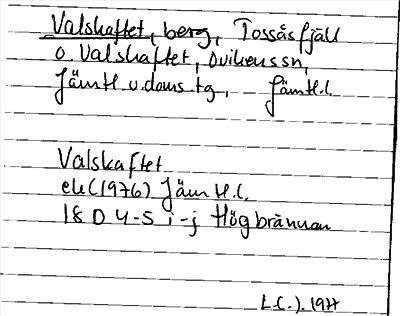 Valskaftet, berg, Tossåsfjäll
o. Valskaftet, Ovikens sn,
Jämtl. v. doms. tg, Jämtl. l.
Valskaftet
ek (1976) Jämtl. l.
18 D 4-5 i-j Högbrännan
1977